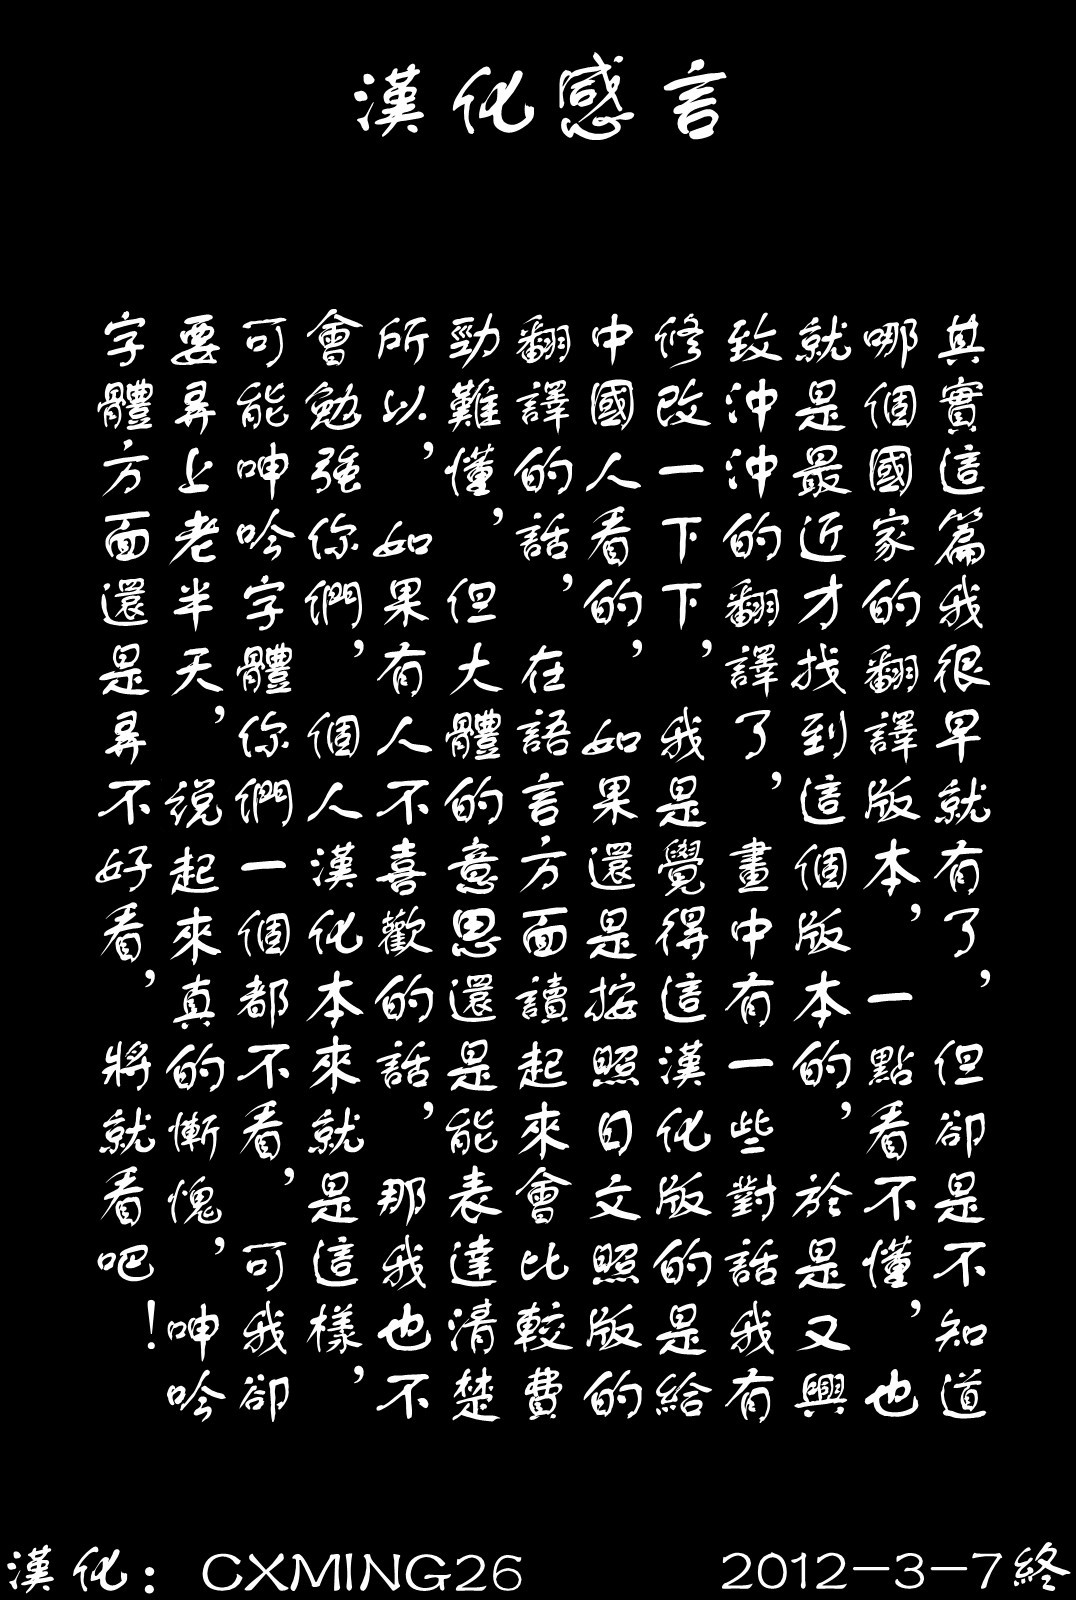 漢化感言
其實這篇我很早就有了，但卻是不知道
哪個國家的翻譯版本，一點看不懂，也
就是最近才找到這個版本的，於是又興
致沖沖的翻譯了，畫中有一些對話我有
修改一下下，我是覺得這漢化版的是給
中國人看的，如果還是按照日文照版的
翻譯的話，在語言方面讀起來會比較費
勁難懂，但大體的意思還是能表達清楚
所以，如果有人不喜歡的話，那我也不
會勉強你們，個人漢化本來就是這樣，
可能呻吟字體你們一個都不看，可我卻
要弄上老半天，说起來真的慚愧，呻吟
字體方面還是弄不好看，將就看吧！
漢化：CXMING26
2012-3-7終